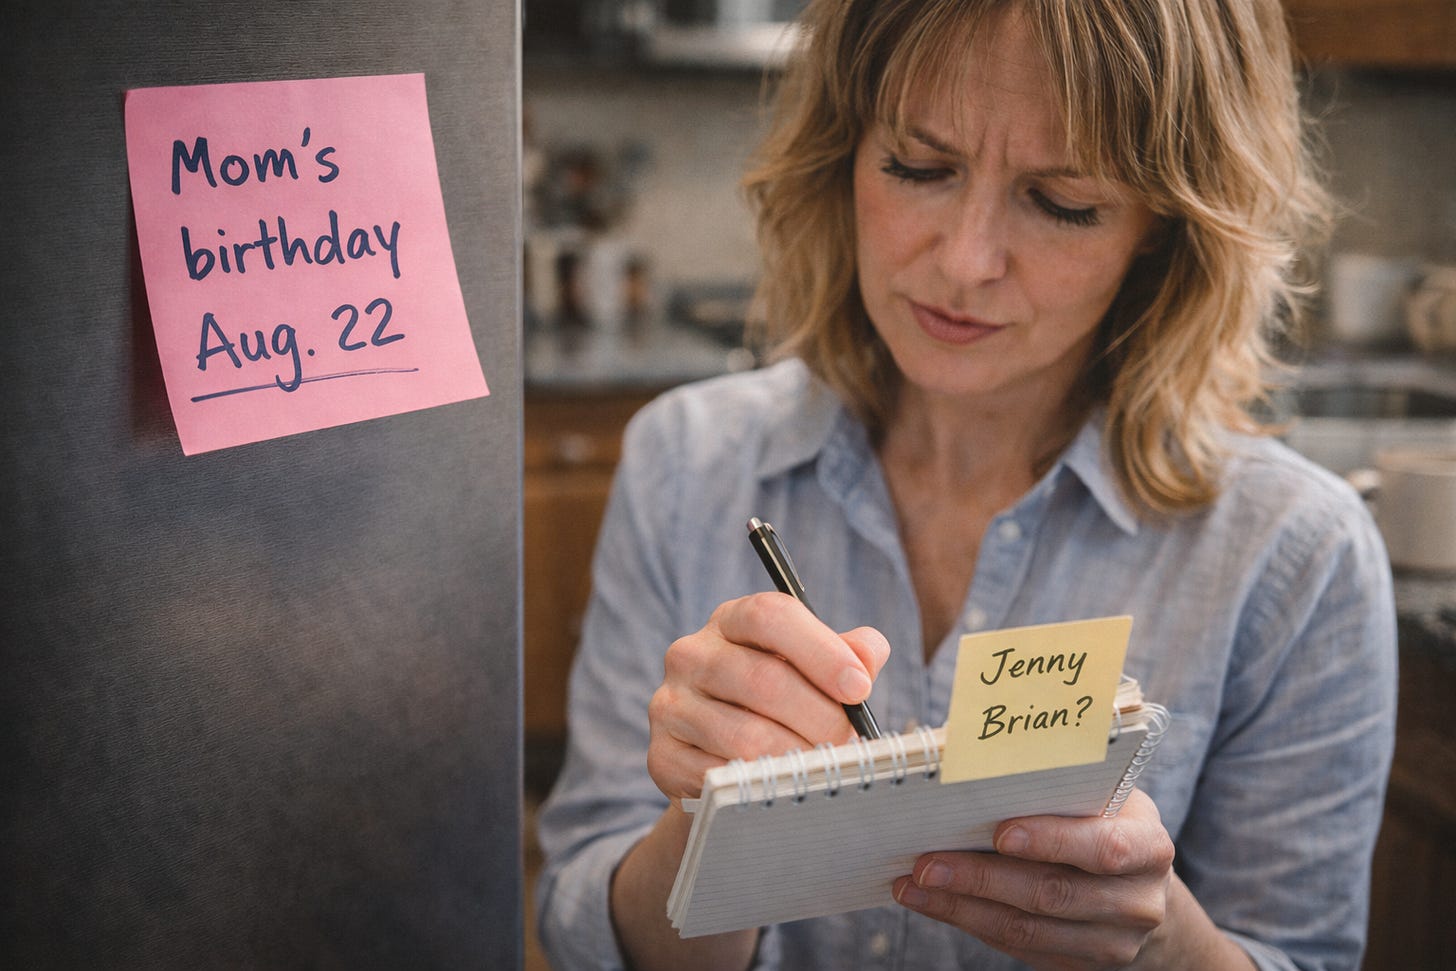 Mom's
birthday
Aug. 22
Jenny
Brian?